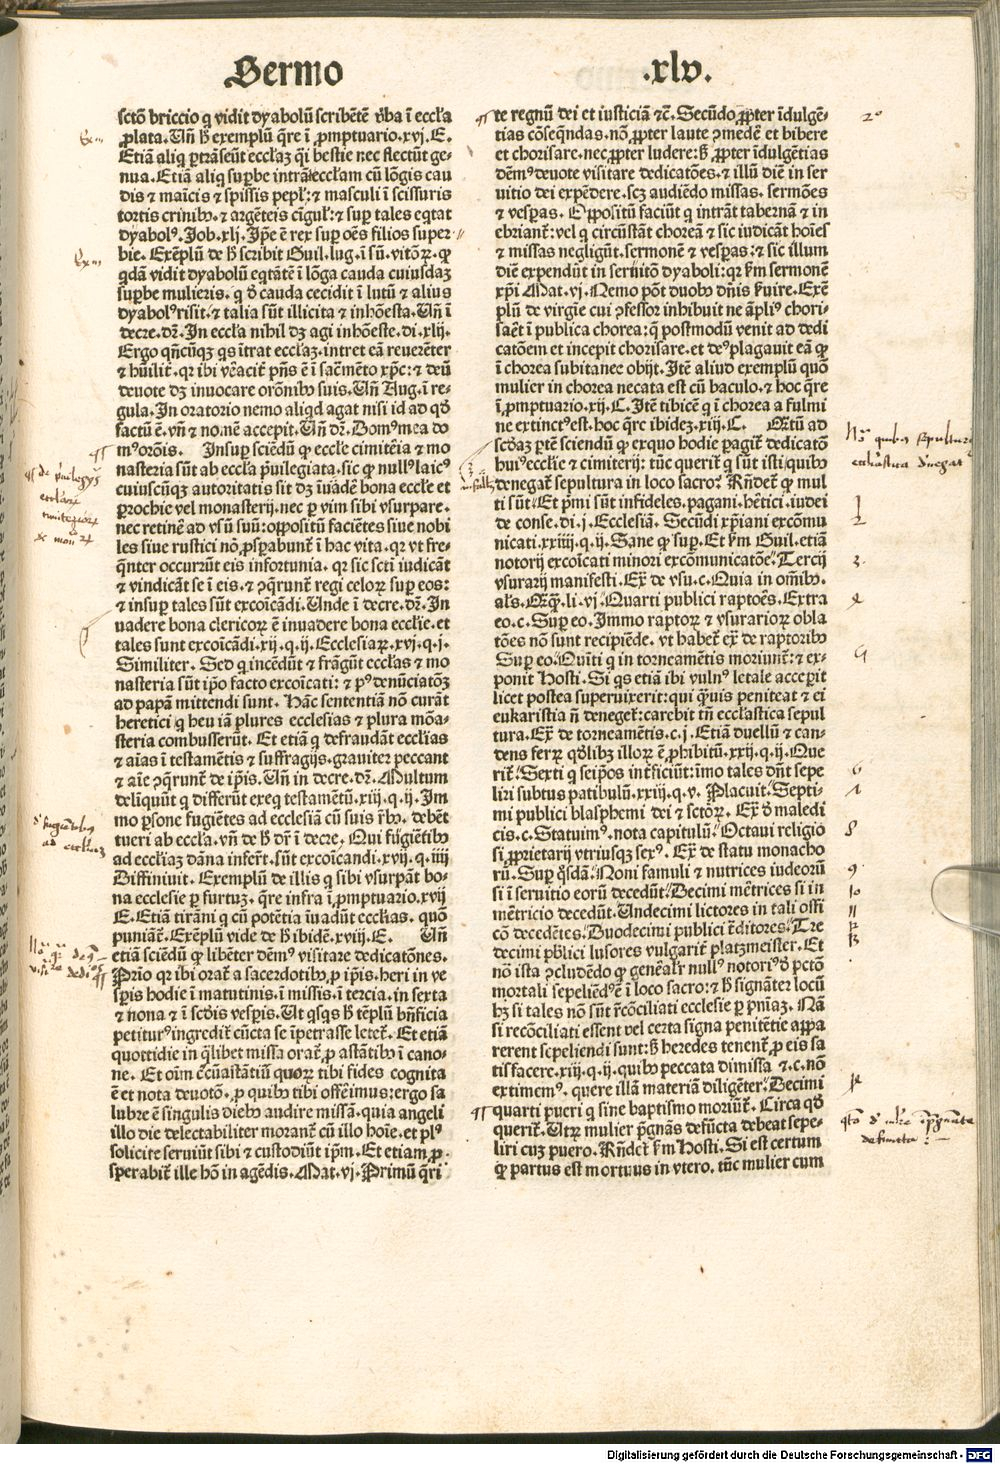 Sermo .xlv.
sctō briccio q vidit dyabolū scribētē v̄ba ī eccl̄a
ꝓlata. Vn̄ ꝧ exemplū q̄re ī ꝓmptuario. xvj. E.
Etiā aliq ꝑtrāseūt eccl̄aꝫ q̄i bestie nec flectūt ge-
nua. Etiā aliqui suꝑbe intrāt eccl̄am cū lōgis cau
dis ⁊ māicis ⁊ spissis pepl̄: ⁊ masculi ī scissuris
tortis crinibꝰ. ⁊ argēteis cīgul̄: ⁊ suꝑ tales eqtat
dyabolꝰ. Job. xlj. Ip̄e ē rex suꝑ oēs filios suꝑ
bie. Exēplū de ꝧ scribit Guil. lug. ī sū. vitōꝝ. ꝙ
qdā vidit dyabolū eqtātē ī lōga cauda cuiusdaꝫ
suꝑbe mulieris. q ƌ cauda cecidit ī lutū ⁊ alius
dyabolꝰ risit. ⁊ talia sūt illicita ⁊ inhōesta. Vn̄ ī
decre. dr̄. In eccl̄a nihil dꝫ agi inhōeste. di. xlij.
Ergo qn̄cūqꝫ qs ītrat eccl̄aꝫ. intret eā reuerēter
⁊ hūilit̄. qr ibi v̄acit̄ pn̄s ē ī sac̄mēto xp̄c: ⁊ deū
deuote dꝫ inuocare orōnibꝰ suis. Vn̄ Aug. ī re-
gula. In oratorio nemo aliqd agat nisi id ad qƌ
factū ē. vn̄ ⁊ nomē accepit. Vn̄ dr̄. Domꝰ mea do
mꝰ orōis. Insuꝑ sciēdū ꝙ eccl̄e cimitēia ⁊ mo
nasteria sūt ab eccl̄a p̄uilegiata. sic ꝙ nullꝰ laicꝰ
cuiuscūqꝫ autoritatis sit dꝫ īuadē bona eccl̄e et
ꝑrochie vel monasterij. nec ꝑ vim sibi vsurpare.
nec retinē ad vsū suū: oppositū faciētes siue nobi
les siue rustici nō ꝓsꝑabunt̄ ī hac vita. qr vt fre-
q̄nter occurrūt eis infortunia. qr sic scti iudicāt
⁊ vindicāt se ī eis. ⁊ ꝯq̄runt̄ regi celoꝝ suꝑ eos:
⁊ insuꝑ tales sūt excoīcādi. Vnde ī decre. dr̄. In
uadere bona clericoꝝ ē inuadere bona eccl̄ie. et
tales sunt excoīcādi. xij. q. ij. Ecclesiaꝝ. xvj. q. j.
Similiter. Sed q incēdūt ⁊ frāgūt eccl̄as ⁊ mo
nasteria sūt ip̄o facto excoīcati: ⁊ pꝰ denūciatōꝫ
ad papā mittendi sunt. Hāc sententiā nō curāt
heretici q heu iā plures ecclesias ⁊ plura mōa-
steria combusserūt. Et etiā q defraudāt eccl̄ias
⁊ aīas ī testamētis ⁊ suffragijs. grauiter peccant
⁊ aīe ꝯq̄runt̄ de ip̄is. Vn̄ in decre. dr̄. Multum
deliquūt q differūt exeq testamētū. xiij. q. ij. Im
mo ꝑsone fugiētes ad ecclesiā cū suis r̄bꝰ. debēt
tueri ab eccl̄a. vn̄ de ꝧ dr̄ ī decre. Qui fugiētibꝰ
ad eccl̄iaꝫ dāna infert̄. sūt excoīcandi. xvij. q. iiij
Diffiniuit. Exemplū de illis q sibi vsurpāt bo-
na ecclesie ꝑ furtuꝫ. q̄re infra ī ꝓmptuario. xvij
E. Etiā tirāni q cū potētia īuadūt eccl̄ias. quō
puniāt̄. Exēplū vide de ꝧ ibidē. xviij. E. Vn̄
etiā sciēdū ꝙ libēter dēmꝰ visitare dedicatōnes.
Prīo qr ibi orat̄ a sacerdotibꝰ ꝓ ip̄is. heri in ve
sꝑis hodie ī matutinis. ī missis. ī tercia. in sexta
⁊ nona ⁊ ī scdis vesꝑis. Vt qsqs ꝧ tēplū bn̄ficia
petiturꝰ ingredit̄ cūcta se īpetrasse letet̄. Et etiā
quottidie in q̄libet missa orat̄. ꝓ astātibꝰ ī cano-
ne. Et oīm c̄cūastātiū quoꝝ tibi fides cognita
ē et nota deuotō. ꝓ quibꝰ tibi offērimus: ergo sa
lubre ē singulis diebꝰ audire missā. quia angeli
illo die delectabiliter morant̄ cū illo hoīe. et plꝰ
solicite seruiūt sibi ⁊ custodiūt ip̄m. Et etiam ꝓ
sperabit̄ ille hō in agēdis. Mat. vj. Primū q̄ri
te regnū dei et iusticiā ⁊c̄. Secūdo ꝓpter īdulgē-
tias cōseqndas. nō ꝓpter laute ꝯmedē et bibere
et chorisare. nec ꝓpter ludere: ꝧ ꝓpter īdulgētias
dēmꝰ deuote visitare dedicatōes. ⁊ illū diē in ser
uitio dei expēdere. scꝫ audiēdo missas. sermōes
⁊ vesꝑas. Oppositū faciūt q intrāt tabernā ⁊ in
ebriant̄: vel q circūstāt choreā ⁊ sic iudicāt hoīes
⁊ missas negligūt. sermonē ⁊ vesꝑas: ⁊ sic illum
diē expendūt in seruitō dyaboli: qr ẜm sermonē
xp̄i Mat. vj. Nemo pōt duobꝰ dn̄is ẜuire. Exē
plū de virgīe cui ꝯfessor inhibuit ne āplꝰ chori-
saēt ī publica chorea: q̄ postmodū venit ad dedi
catōem et incepit chorisare. et deꝰ plagauit eā ꝙ
ī chorea subitanee obijt. Itē aliud exemplū quō
mulier in chorea necata est cū baculo. ⁊ hoc q̄re
ī ꝓmptuario. xij. C. Itē tibicē q ī chorea a fulmi
ne extinctꝰ est. hoc q̄re ibideꝫ. xiij. C. Qr̄tū ad
scdaꝫ ꝑtē sciendū ꝙ exquo hodie ꝑagit̄ dedicatō
huiꝰ eccl̄ie ⁊ cimiterij: tūc querit̄ q sūt isti quibꝰ
denegat̄ sepultura in loco sacro? Rn̄det̄ ꝙ mul
ti sūt. Et p̄mi sūt infideles. pagani. hētici. iudei
de conse. di. j. Ecclesiā. Secūdi xp̄iani excōmu
nicati. xxiiij. q. ij. Sane ꝙ suꝑ. Et ẜm Guil. etiā
notorij excoīcati minori excomunicatōe. Tercij
vsurarij manifesti. Ex̄ de vsu. c. Quia in om̄ibꝰ.
al̄s. Qr̄qꝫ. li. vj. Quarti publici raptoēs. Extra
eo. c. Suꝑ eo. Immo raptoꝝ ⁊ vsurarioꝝ obla
tōes nō sunt recipiēde. vt habet̄ ex̄ de raptoribꝰ
Suꝑ eo. Quīti q in torneamētis moriunt̄: ⁊ ex-
ponit Hosti. Si qs etiā ibi vulnꝰ letale acceꝑit
licet postea superuixerit: qui q̄uis peniteat ⁊ ei
eukaristia n̄ deneget̄: carebit tn̄ eccl̄astica sepul
tura. Ex̄ de torneamētis. c. j. Etiā duellū ⁊ can-
dens ferꝝ qƌlibꝫ illoꝝ ē ꝓhibitū. xxij. q. ij. Que
rit̄. Sexti q seip̄os int̄ficiūt: imo tales dn̄t sepe
liri subtus patibulū. xxiij. q. v. Placuit. Septi-
mi publici blasphemi dei ⁊ sctōꝝ. Ex̄ ƌ maledi
cis. c. Statuimꝰ. nota capitulū. Octaui religio
si ꝓprietarij vtriusqꝫ sexꝰ. Ex̄ de statu monacho
rū. Suꝑ q̄sdā. Noni famuli ⁊ nutrices iudeorū
si ī seruitio eorū decedūt. Decimi mētrices si in
mētricio decedūt. Vndecimi lictores in tali offi
cō decedētes. Duodecimi publici t̄ditores. Tre
decimi pb̄lici lusores vulgarit̄ platzmeister. Et
nō ista ꝯcludēdo ꝙ genēalr̄ nullꝰ notoriꝰ ƌ pctō
mortali sepeliēdꝰ ē ī loco sacro: ⁊ ꝧ signāter locū
hꝫ si tales nō sūt rēcōciliati ecclesie ꝑ pn̄iaꝫ. Nā
si recōciliati essent vel certa signa penitētie appa
rerent sepeliendi sunt: ꝧ heredes tenent̄ ꝓ eis sa
tisfacere. xiij. q. ij. quibꝰ peccata dimissa ⁊ c. nō
extimemꝰ. quere illā materiā diligēter. Decimi
quarti pueri q sine baptismo moriūt̄. Circa qƌ
querit̄. Vtꝝ mulier p̄gnās defūcta debeat sepe-
liri cuꝫ puero. Rn̄det̄ ẜm Hosti. Si est certum
ꝙ partus est mortuus in vtero. tūc mulier cum
2º
1
2
3
6
8
9
10
11
12
13
Digitalisierung gefördert durch die Deutsche Forschungsgemeinschaft - DFG